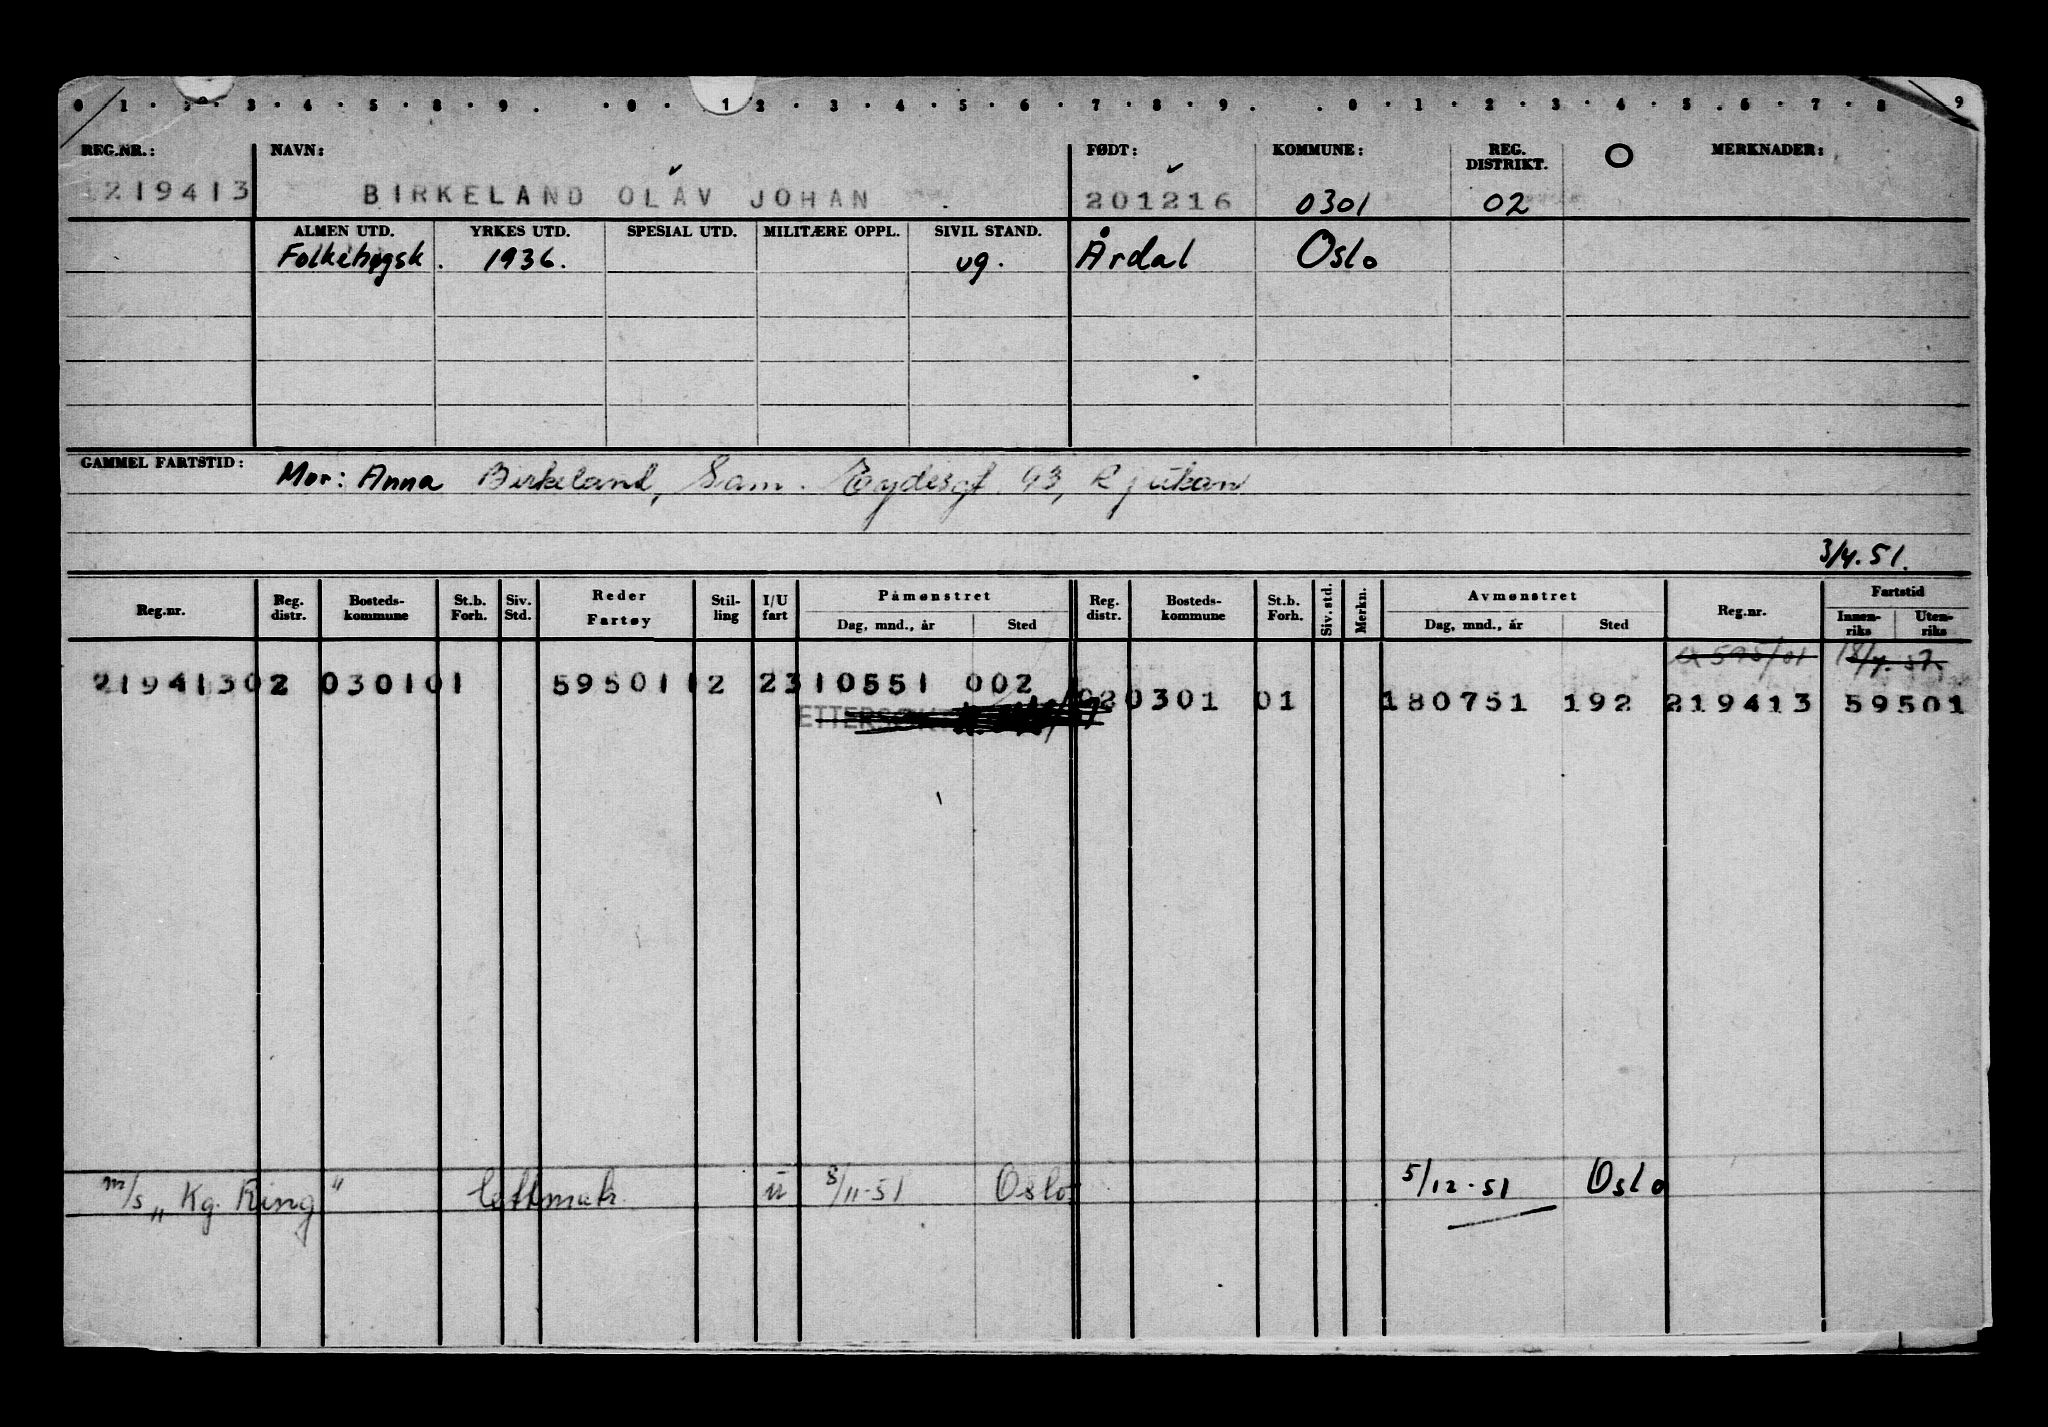 0 1 · 2 · 3 · 4 · 5 · 8 · 9 . · 0 · 1 2 · 3 · 4 · 5 · 6 · 7 · 8 · 9 . . 0 · 1 · 2 · 3 · 4 · 5 . 6 · 7 · 8 9
REG.NR.: NAVN: FØDT: KOMMUNE: REG. DISTRIKT. O MERKNADER:
219413 BIRKELAND OLAV JOHAN 201216 0301 02
ALMEN UTD. YRKES UTD. SPESIAL UTD. MILITÆRE OPPL. SIVIL STAND.
Folkehøgsk. 1936. ug. Årdal Oslo
GAMMEL FARTSTID: Mor: Anna Birkeland, Sam. Eydesgt. 43, Rjukan
3/4.51.
Reg.nr. Reg. distr. Bosteds-kommune St.b. Forh. Siv. Std. Reder Fartøy Stil-ling I/U fart Påmønstret Dag, mnd., år Sted Reg. distr. Bosteds-kommune St.b. Forh. Siv. std. Merkn. Avmønstret Dag, mnd., år Sted Reg.nr. Fartstid Innen-riks Uten-riks
21941302 030101 5950112 2310551 002
020301 01 180751 192 219413 59501
m/s "Kg. Ring" u 8/11-51 Oslo 5/12-51 Oslo